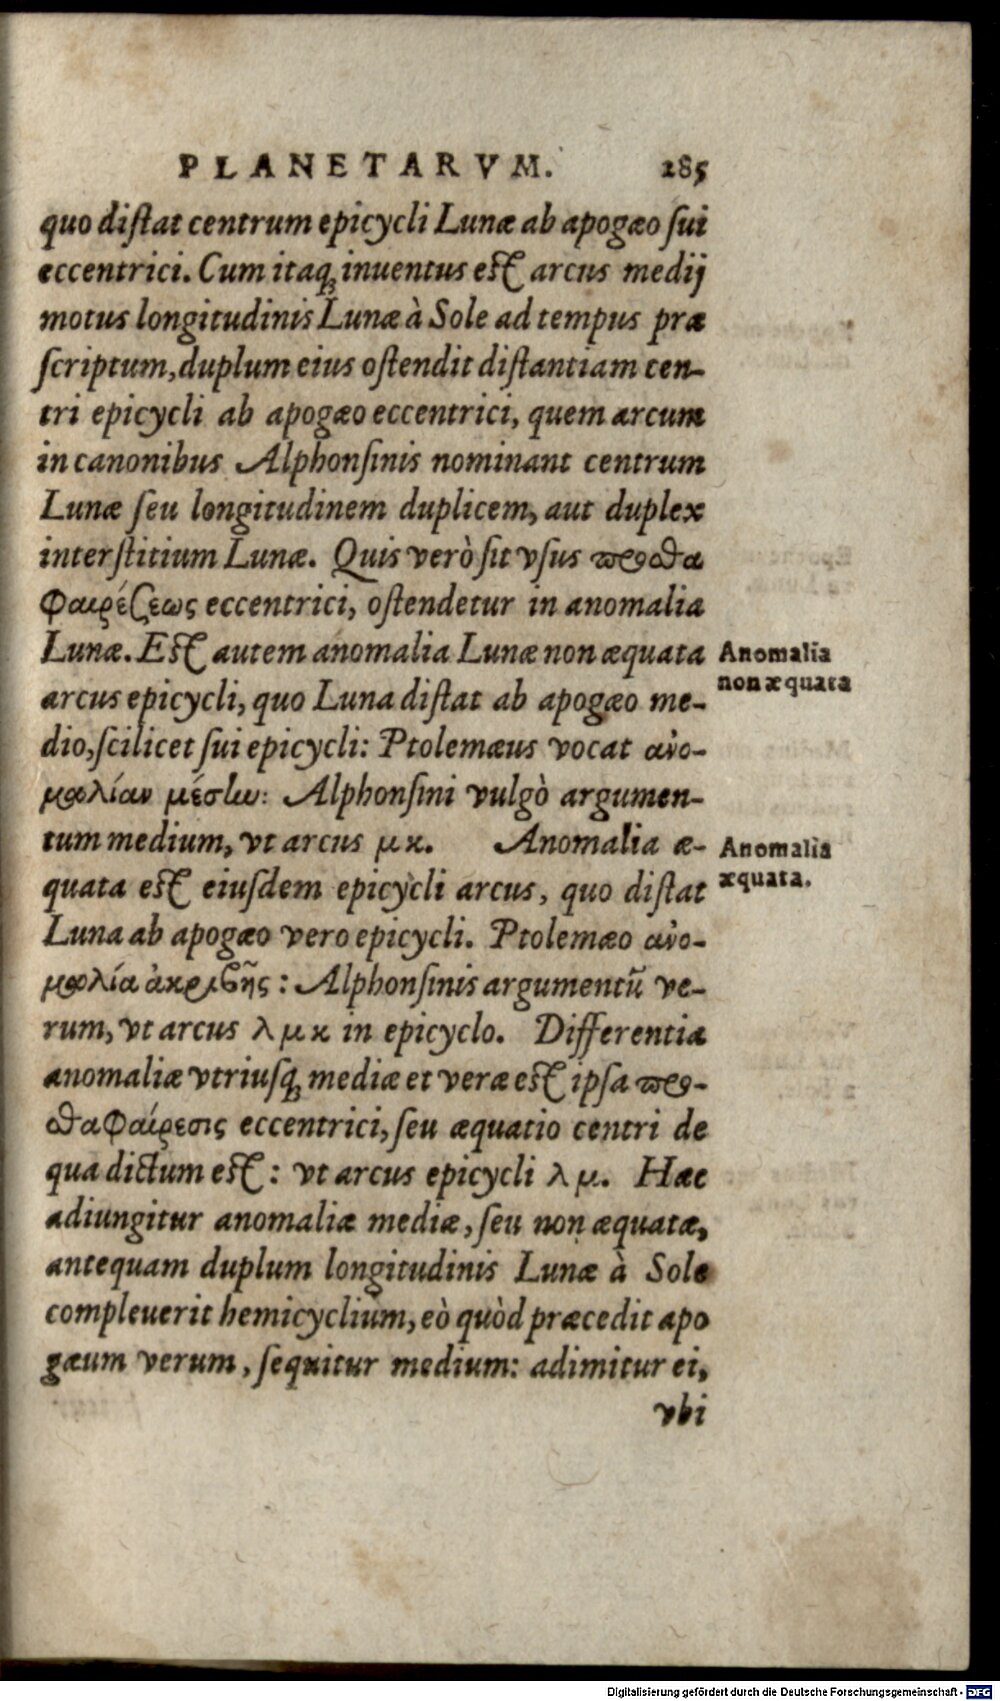 PLANETARVM. 285
quo distat centrum epicycli Lunæ ab apogæo sui
eccentrici. Cum itaq; inuentus est arcus medij
motus longitudinis Lunæ à Sole ad tempus præ
scriptum, duplum eius ostendit distantiam cen-
tri epicycli ab apogæo eccentrici, quem arcum
in canonibus Alphonsinis nominant centrum
Lunæ seu longitudinem duplicem, aut duplex
interstitium Lunæ. Quis verò sit vsus προσθα
φαιρέσεως eccentrici, ostendetur in anomalia
Lunæ. Est autem anomalia Lunæ non æquata
Anomalia
non æquata
arcus epicycli, quo Luna distat ab apogæo me-
dio, scilicet sui epicycli: Ptolemæus vocat ἀνο-
μαλίαν μέσην: Alphonsini vulgò argumen-
tum medium, vt arcus μκ. Anomalia æ-
Anomalia
æquata.
quata est eiusdem epicycli arcus, quo distat
Luna ab apogæo vero epicycli. Ptolemæo ἀνο-
μαλία ἀκριβῆς: Alphonsinis argumentũ ve-
rum, vt arcus λμκ in epicyclo. Differentia
anomaliæ vtriusq; mediæ et veræ est ipsa προσ-
θαφαίρεσις eccentrici, seu æquatio centri de
qua dictum est: vt arcus epicycli λμ. Hæc
adiungitur anomaliæ mediæ, seu non æquatæ,
antequam duplum longitudinis Lunæ à Sole
compleuerit hemicyclium, eò quòd præcedit apo
gæum verum, sequitur medium: adimitur ei,
vbi
Digitalisierung gefördert durch die Deutsche Forschungsgemeinschaft - DFG